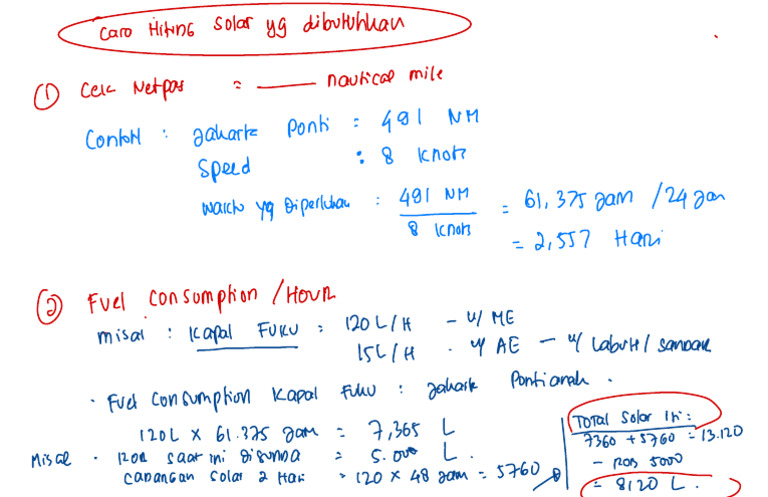 Cara Hiting Solar yg dibutuhkan
① Cek Netpas = ____ nautical mile
Contoh : Jakarta Ponti = 491 NM
Speed : 8 Knots
Waktu yg Diperlukan : 491 NM / 8 Knots = 61,375 Jam /24 Jam
= 2,557 Hari
② Fuel Consumption /Hour
misal : Kapal FUKU = 120 L/H - u/ ME
15 L/H . u/ AE - u/ Labuh / Sandar
• Fuel Consumption Kapal Fuku : Jakarta Pontianak .
120L x 61.375 Jam = 7,365 L
Misal . ROB Saat ini Disunda = 5.000 L.
Cadangan Solar 2 Hari = 120 x 48 Jam = 5760
Total Solar Ini :
7360 + 5760 = 13.120
- ROB 5000
= 8120 L.